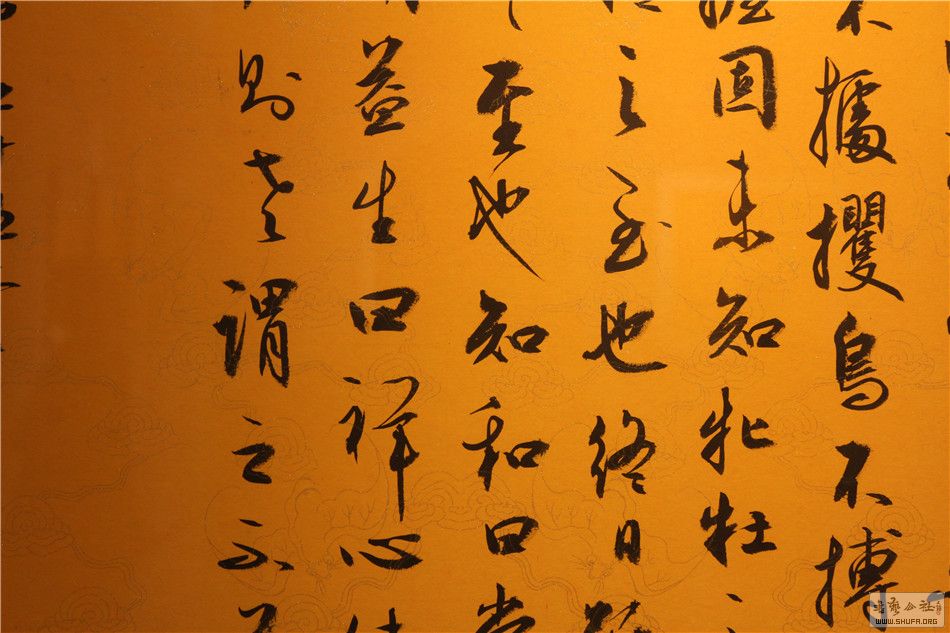 據攫鳥不搏
固未知牝牡
之至也終日
至也知和曰常
益生曰祥心
則老謂之不
書藝公社
WWW.SHUFA.ORG